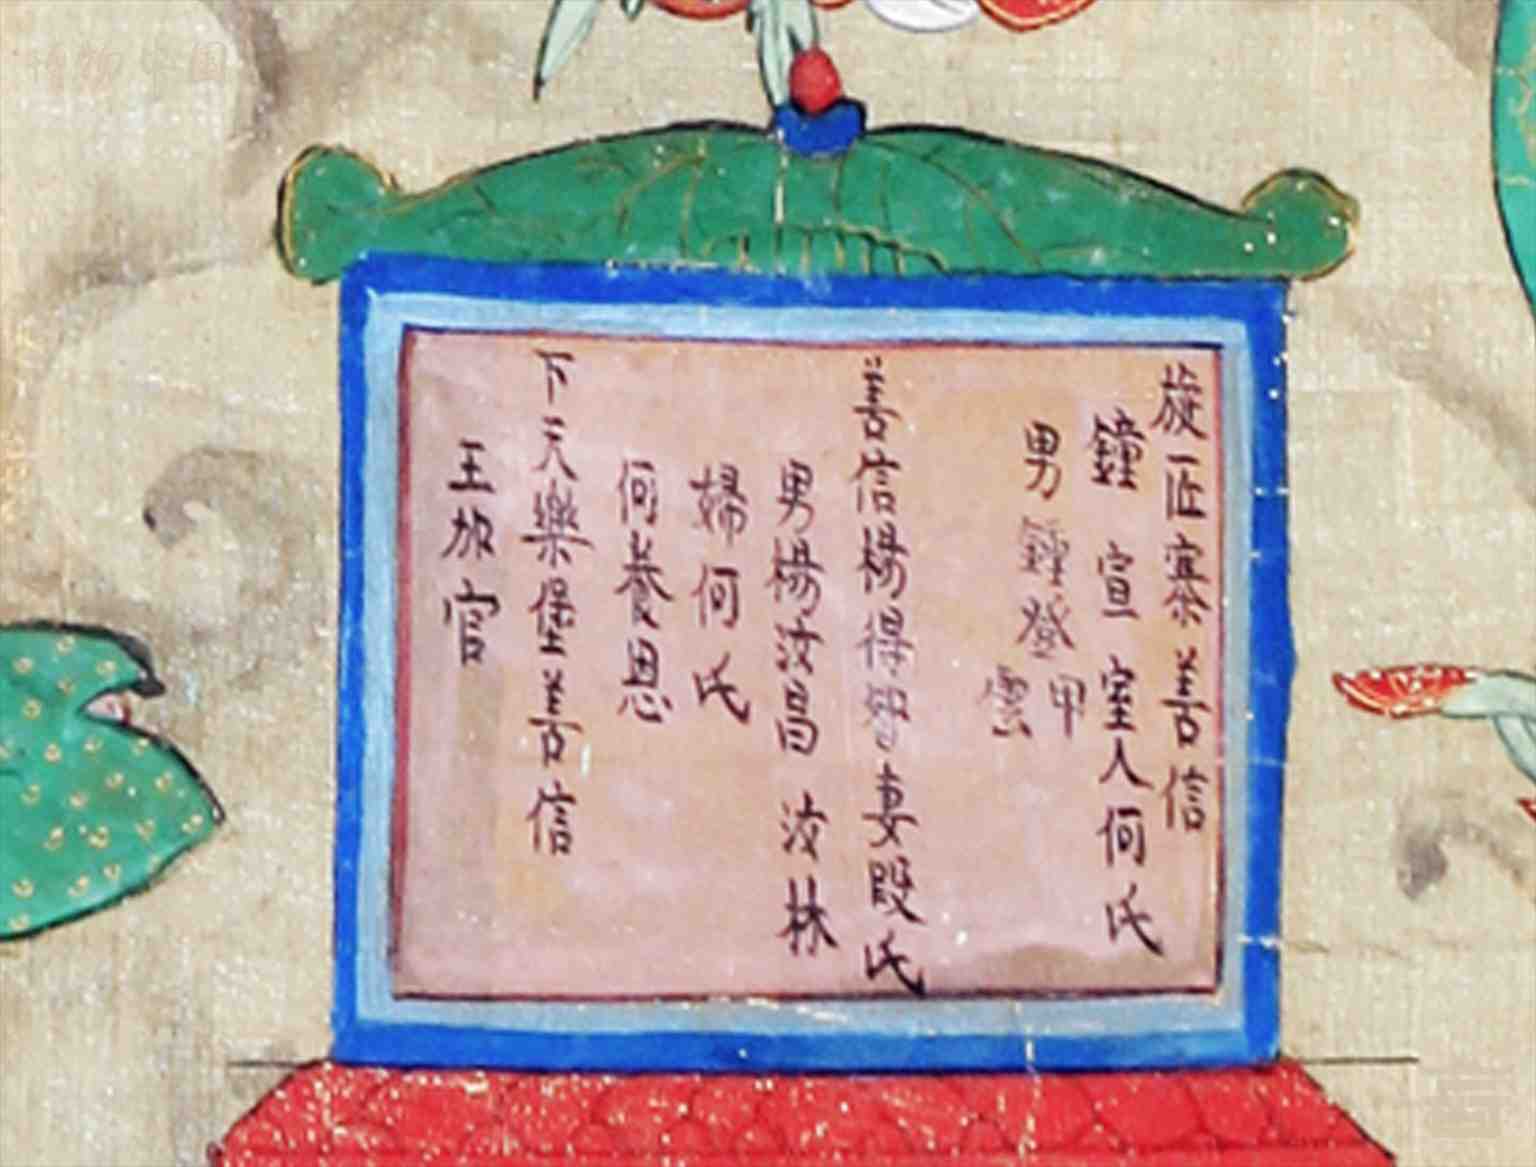 旋匠寨善信
鐘宣室人何氏
男鍾登甲
雲
善信楊得智妻段氏
男楊汝昌 汝林
婦何氏
何養恩
下天樂堡善信
王加官